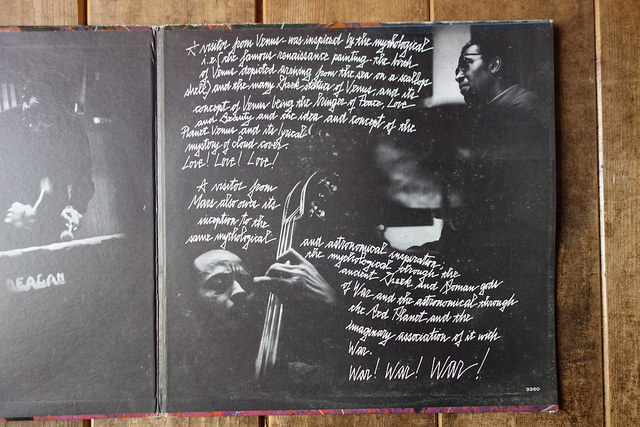 A visitor from Venus was inspired by the mythological
i.e. (the famous renaissance painting the birth
of Venus depicted arising from the sea on a scallop
shell) and the many Greek statues of Venus, and its
concept of Venus being the Bringer of Peace, Love
and Beauty and the idea and concept of the
Planet Venus and its lyrical
mystery of cloud cover.
Love! Love! Love!
A visitor from
Mars also owes its
inception to the
same mythological
and astronomical inspiration,
the mythological through the
ancient Greek and Roman gods
of War and the astronomical through
the Red Planet and the
imaginary association of it with
War.
War! War! War!
DEAGAN
3260